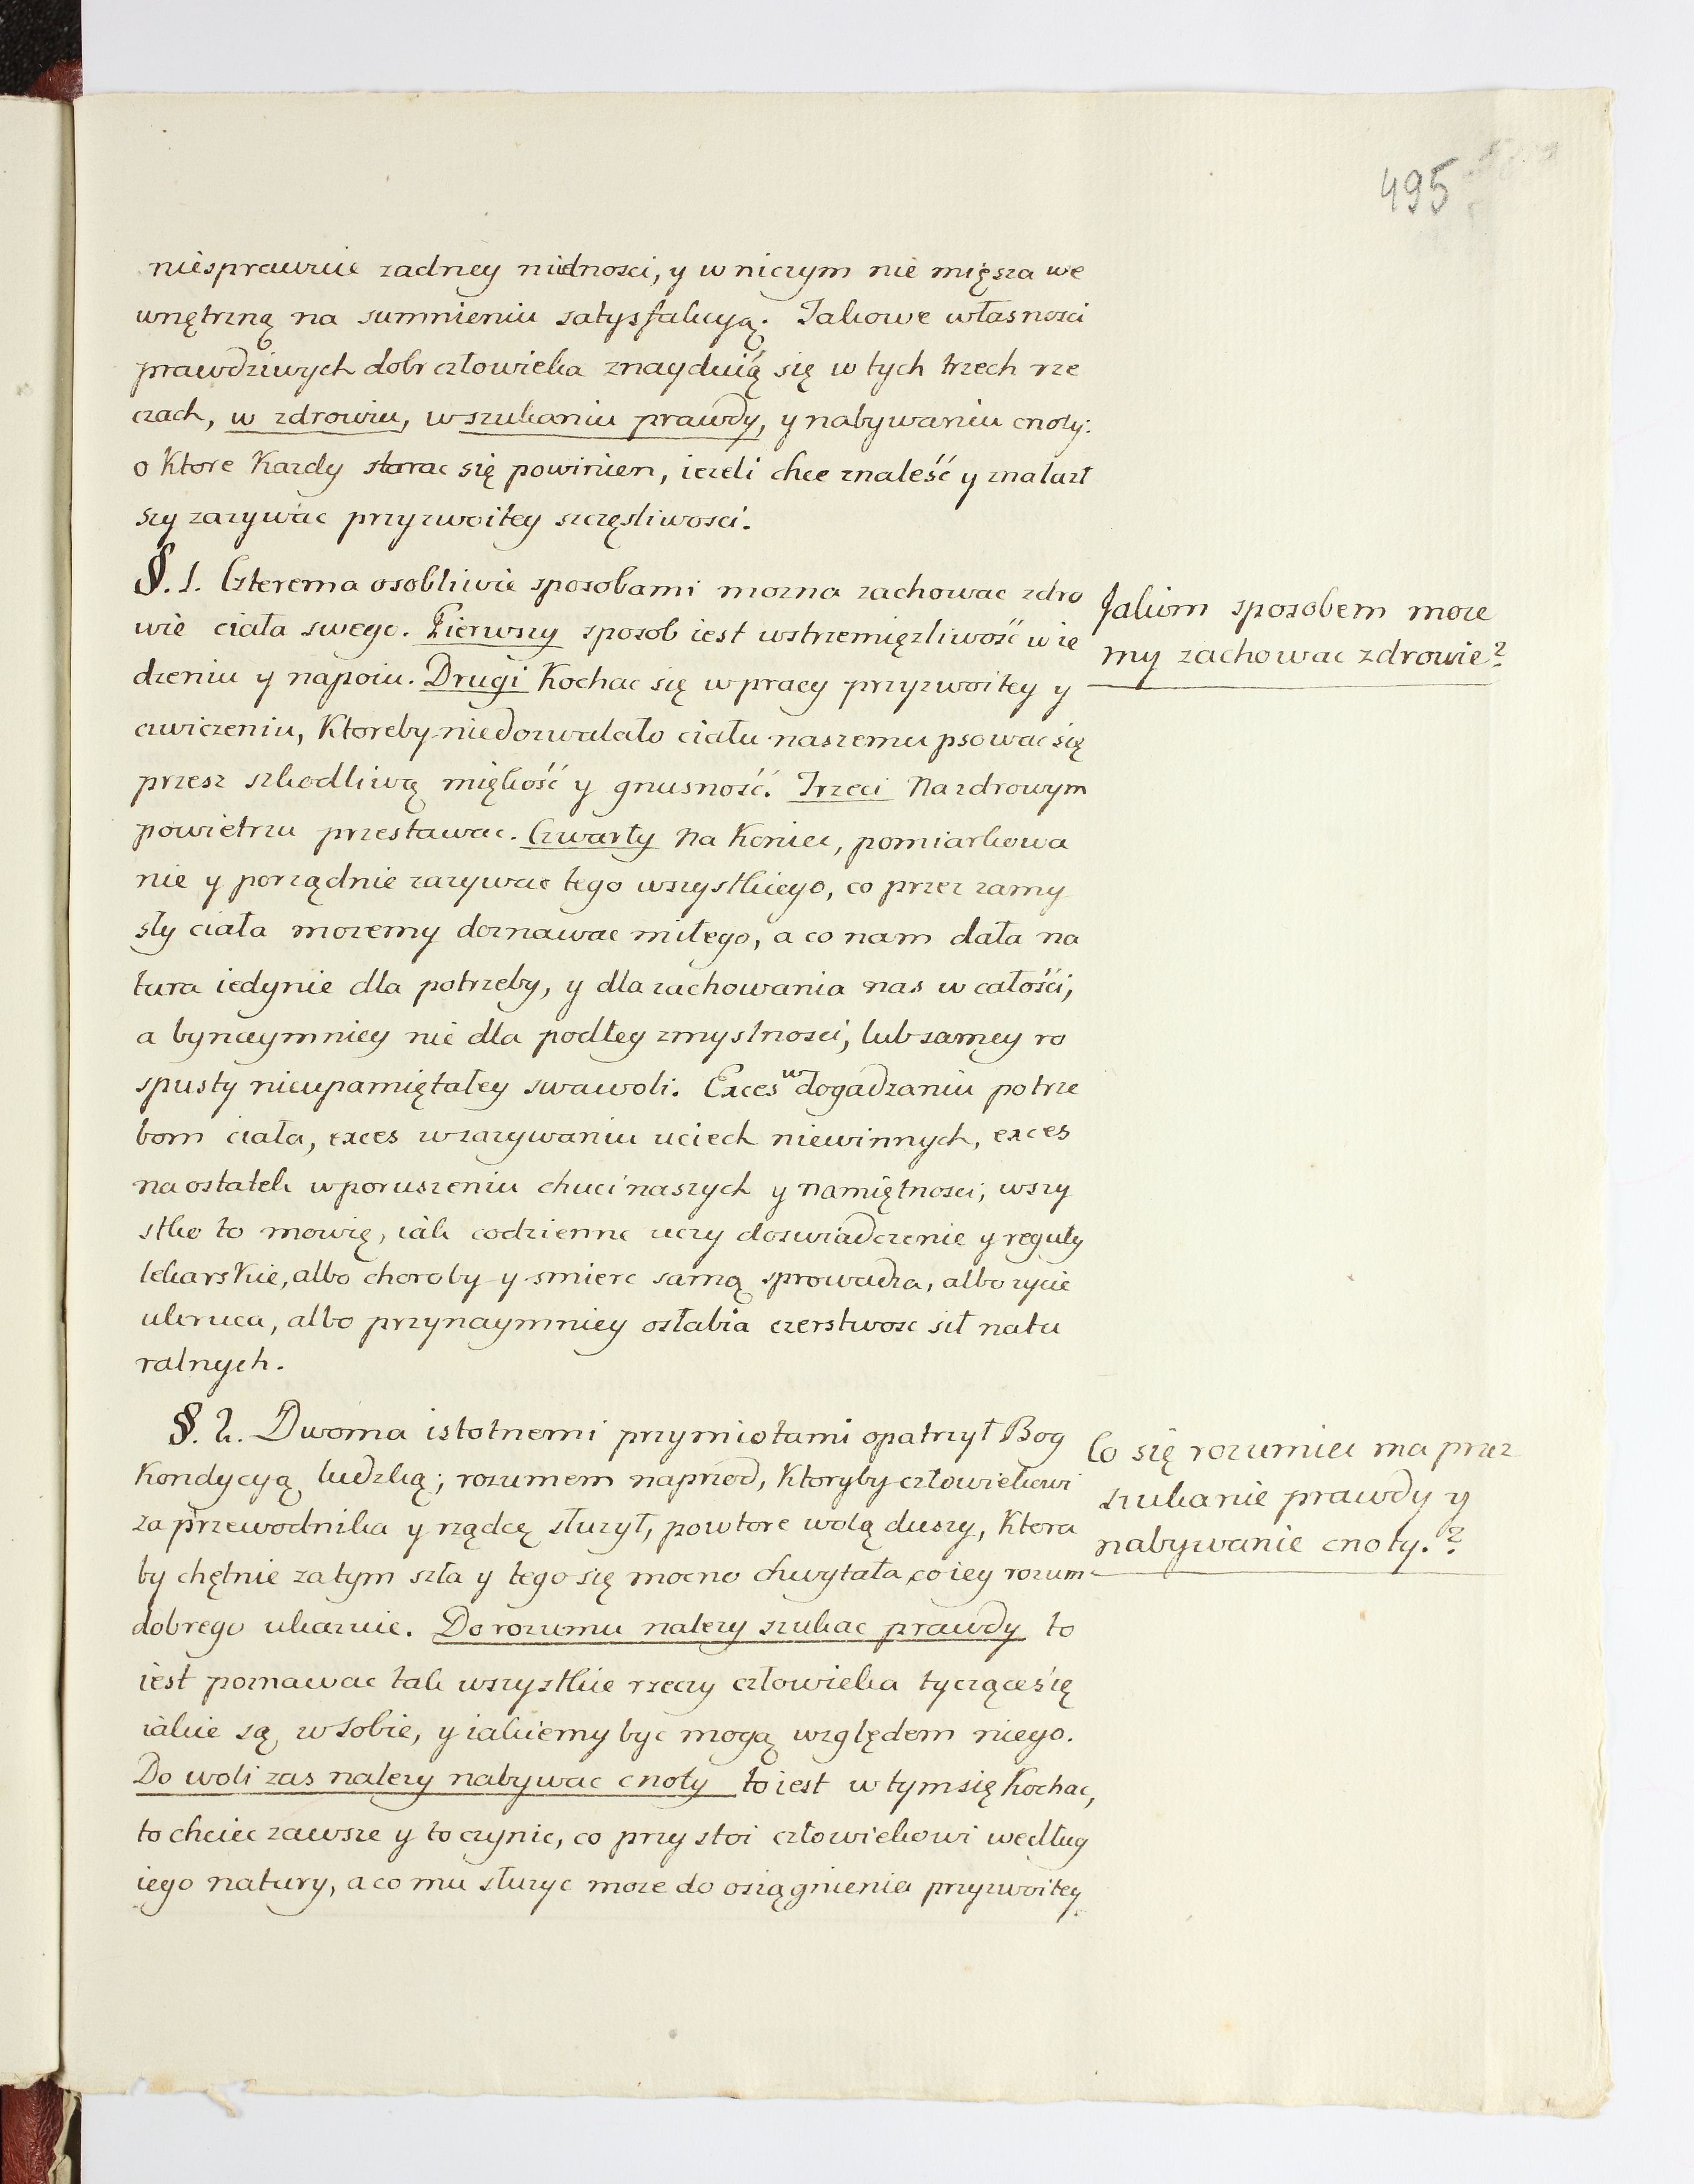 495
niesprawuie zadney nudnosci, y w niczym nie mięsza we
wnętrzną na sumnieniu satysfakcyą. Jakowe własnosci
prawdziwych dobr człowieka znayduią się w tych trzech rze
czach, w zdrowiu, w szukaniu prawdy, y nabywaniu cnoty:
o Ktore Kazdy starac się powinien, iezeli chce znaleść y znalazł
szy zazywac przyzwoitey szczęsliwosci.
§. 1. Czterema osobliwie sposobami mozna zachowac zdro
wie ciała swego. Pierwszy sposob iest wstrzemięzliwość w ie
dzeniu y napoiu. Drugi Kochac się w pracy przyzwoitey y
cwiczeniu, Ktoreby niedozwalało ciału naszemu psowac się
przesz szkodliwą miękość y gnusność. Trzeci Na zdrowym
powietrzu przestawac. Czwarty Na Koniec, pomiarkowa
nie y porządnie zazywac tego wszystkiego, co przez zamy
sły ciała mozemy doznawac miłego, a co nam dała na
tura iedynie dla potrzeby, y dla zachowania nas w całości,
a bynaymniey nie dla podłey zmyslnosci, lub samey ro
spusty nieupamiętałey swawoli. Exces w dogadzaniu potrze
bom ciała, exces w zazywaniu uciech niewinnych, exces
na ostatek w poruszeniu chuci naszych y namiętnosci, wszy
stko to mowię, iak codzienne uczy doswiadczenie y reguły
lekarskie, albo choroby y smierc samą sprowadza, albo zycie
ukruca, albo przynaymniey osłabia czerstwosc sił natu
ralnych.
§. 2. Dwoma istotnemi przymiotami opatrzył Bog
Kondycyą ludzką; rozumem naprzod, Ktoryby człowiekowi
za przewodnika y rządcę słuzył, powtore wolą duszy, Ktora
by chętnie za tym szła y tego się mocno chwytała co iey rozum
dobrego ukazuie. Do rozumu nalezy szukac prawdy to
iest poznawac tak wszystkie rzeczy człowieka tyczące się
iakie są w sobie, y iakiemy byc mogą względem niego.
Do woli zas nalezy nabywac cnoty to iest w tym się Kochac,
to chciec zawsze y to czynic, co przystoi człowiekowi według
iego natury, a co mu słuzyc moze do osiągnienia przyzwoitey
Jakim sposobem moze
my zachowac zdrowie?
Co się rozumiec ma przez
szukanie prawdy y
nabywanie cnoty.?